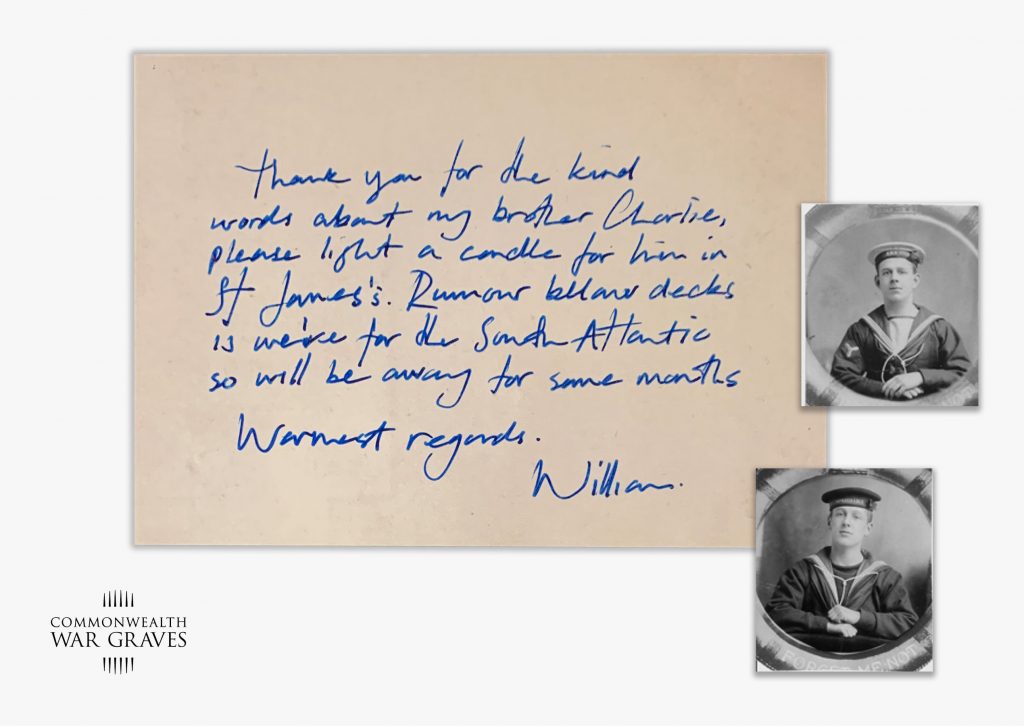 Thank you for the kind
words about my brother Charlie,
please light a candle for him in
St James's. Rumour below decks
is we're for the South Atlantic
so will be away for some months
Warmest regards.
William.
COMMONWEALTH
WAR GRAVES
FORGET-ME-NOT